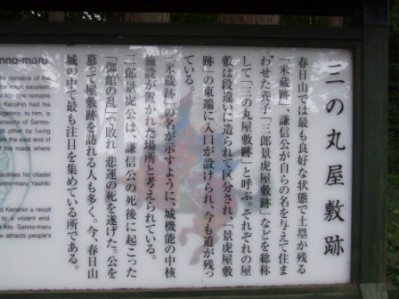 三の丸屋敷跡
春日山では最も良好な状態で土塁が残る
「米蔵跡」、謙信公が自らの名を与えて住ま
わせた養子「三郎景虎屋敷跡」などを総称
して「三の丸屋敷跡」と呼ぶ。それぞれの屋
敷は段違いに造られて区分され、「景虎屋敷
跡」の東端に入口が設けられ、今も道が残っ
ている。
「米蔵跡」の名が示すように、城機能の中核
施設が置かれた場所と考えられている。
三郎景虎公は、謙信公の死後に起こった
「御館の乱」で敗れ、悲運の死を遂げた。公を
慕って屋敷跡を訪れる人も多く。今、春日山
城の中で最も注目を集めている所である。
nno-maru
remains of the
most excellent
Kenshin had his
to him, is
of Sanno-
other by being
the east end of
roads where
facilities for citadel
Sanno-maru Yashiki
Kenshin a revolt
to a violent end.
Sanno-maru
attracts people's